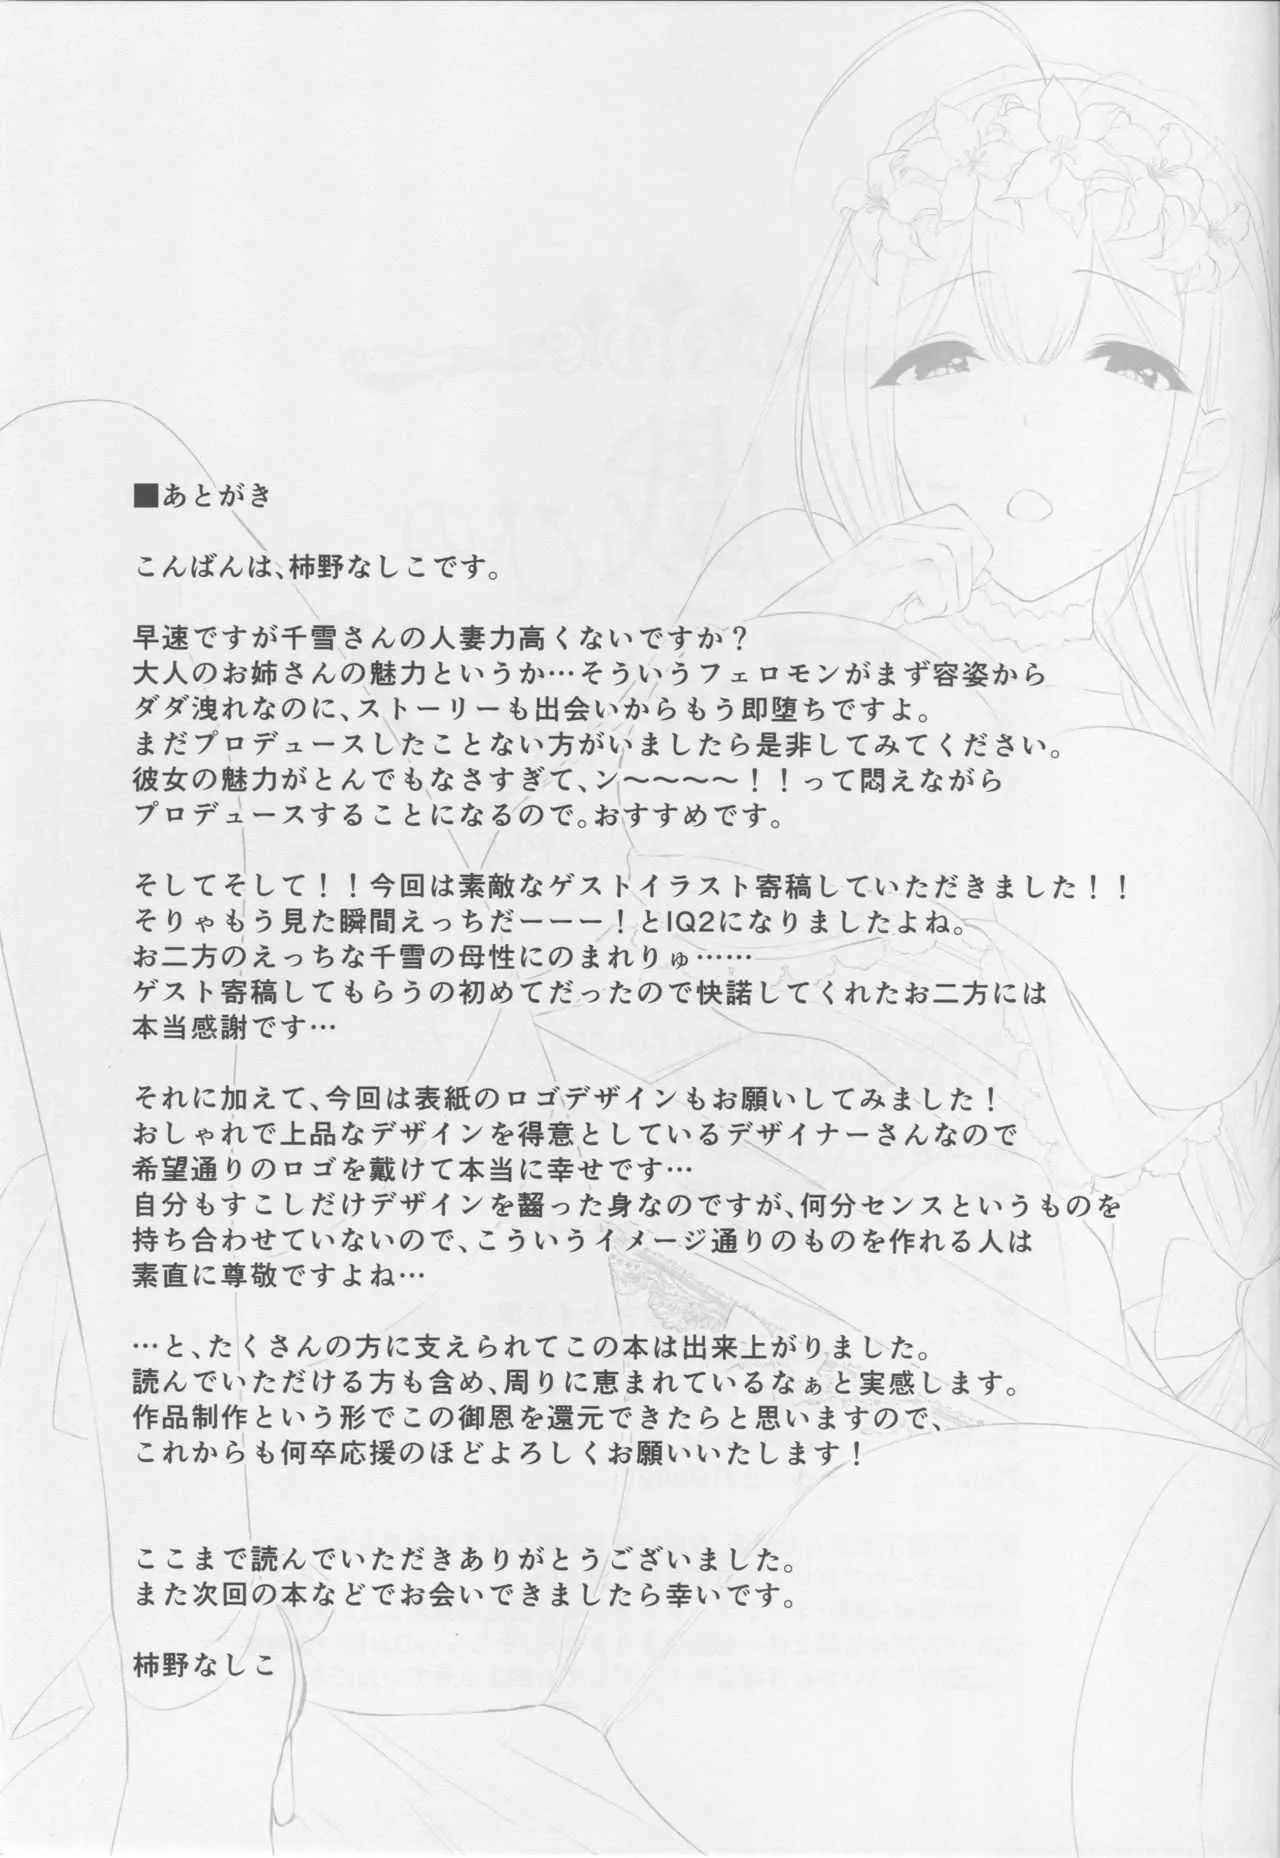 ■あとがき
こんばんは、柿野なしこです。
早速ですが千雪さんの人妻力高くないですか？
大人のお姉さんの魅力というか…そういうフェロモンがまず容姿から
ダダ洩れなのに、ストーリーも出会いからもう即堕ちですよ。
まだプロデュースしたことない方がいましたら是非してみてください。
彼女の魅力がとんでもなさすぎて、ン～～～～！！って悶えながら
プロデュースすることになるので。おすすめです。
そしてそして！！今回は素敵なゲストイラスト寄稿していただきました！！
そりゃもう見た瞬間えっちだーーー！とIQ2になりましたよね。
お二方のえっちな千雪の母性にのまれりゅ……
ゲスト寄稿してもらうの初めてだったので快諾してくれたお二方には
本当感謝です…
それに加えて、今回は表紙のロゴデザインもお願いしてみました！
おしゃれで上品なデザインを得意としているデザイナーさんなので
希望通りのロゴを戴けて本当に幸せです…
自分もすこしだけデザインを齧った身なのですが、何分センスというものを
持ち合わせていないので、こういうイメージ通りのものを作れる人は
素直に尊敬ですよね…
…と、たくさんの方に支えられてこの本は出来上がりました。
読んでいただける方も含め、周りに恵まれているなぁと実感します。
作品制作という形でこの御恩を還元できたらと思いますので、
これからも何卒応援のほどよろしくお願いいたします！
ここまで読んでいただきありがとうございました。
また次回の本などでお会いできましたら幸いです。
柿野なしこ